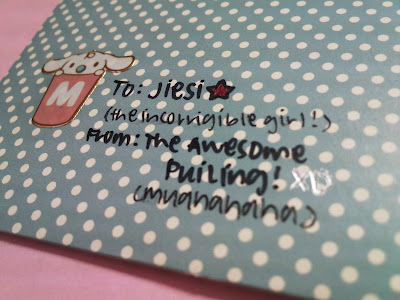 M
To: Jiesi
(the incorrigible girl!)
From: The Awesome
Puiling! XD
(muahahaha)